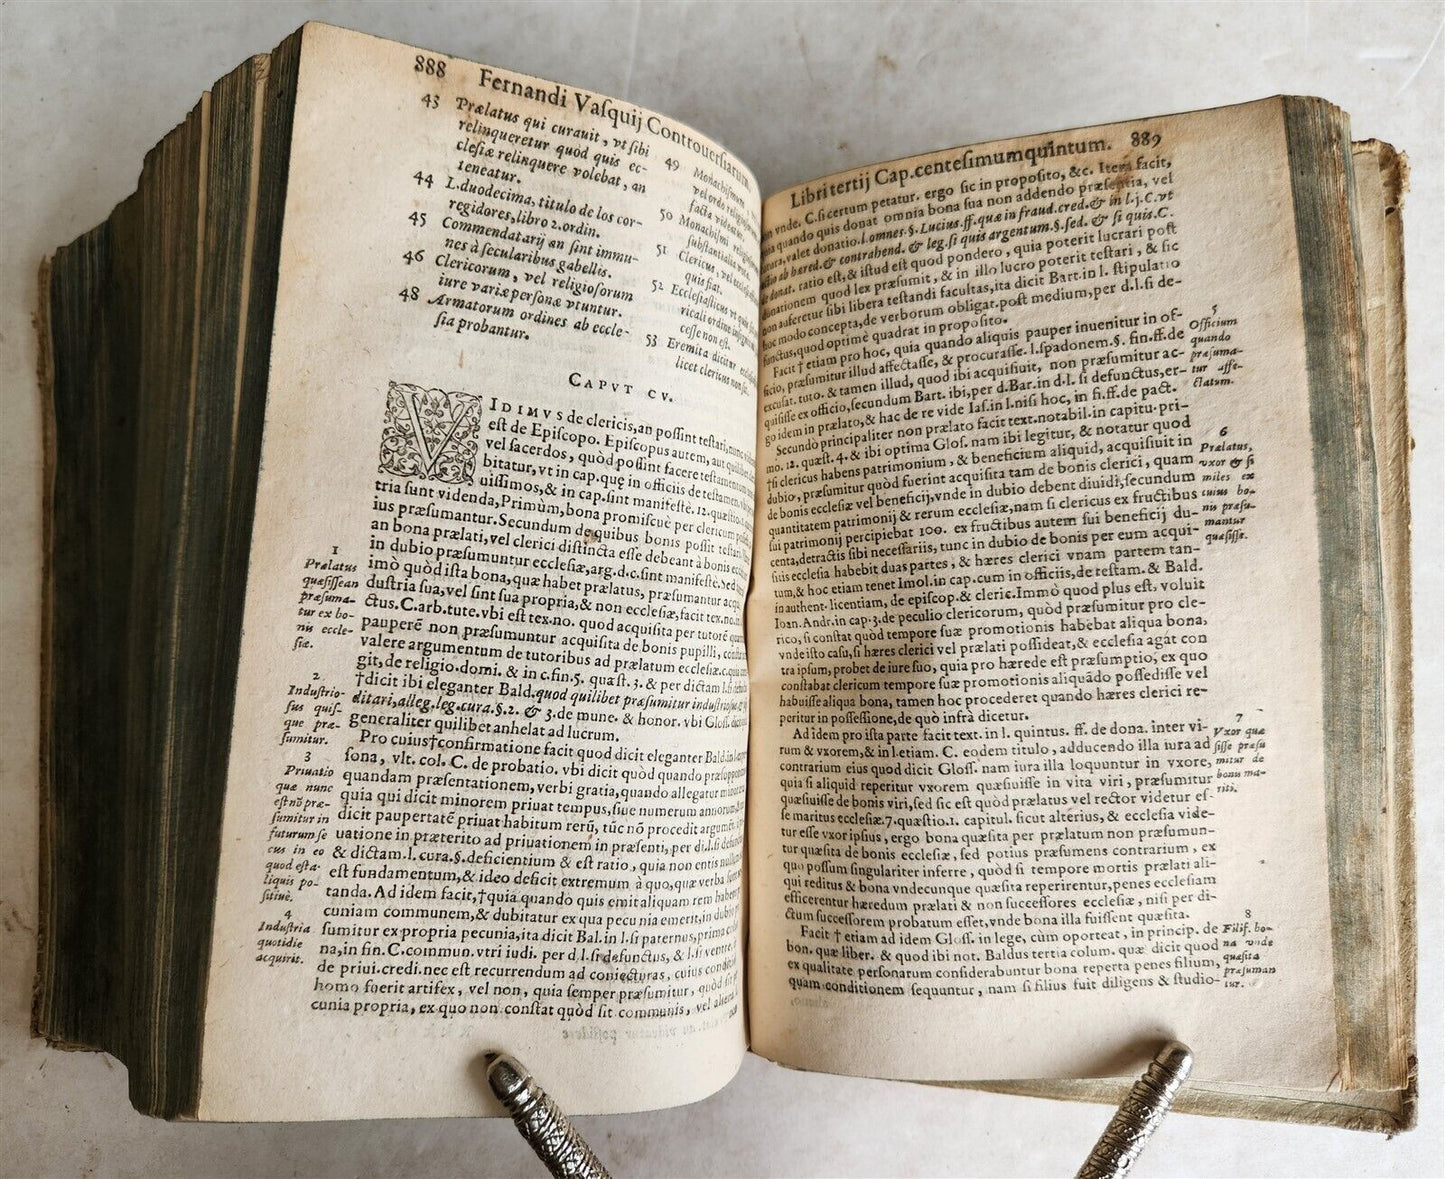 888 Fernandi Vaſquij Controuerſiarum
43 Prælatus qui curauit, vt ſibi
relinqueretur quod quis ec-
cleſiæ relinquere volebat, an
teneatur.
44 L.duodecima, titulo de los cor-
regidores, libro 2.ordin.
45 Commendatarij an ſint immu-
nes à ſecularibus gabellis.
46 Clericorum, vel religioſorum
iure variæ perſonæ vtuntur.
48 Armatorum ordines ab eccle-
ſia probantur.
49 Monachiſmum
vel ordo religioſ
facta videatur
50 Monachiſmi
ſubſtantialia
51 Clericus, vel
quis fiat.
52 Eccleſiaſticus vt quis
ricali ordine inſigni
ceſſe non eſt.
53 Eremita dicitur
licet clericus non ſit.
CAPVT CV.
VIDIMVS de clericis, an poſſint teſtari, nunc
eſt de Epiſcopo. Epiſcopus autem, aut quilibet
vel ſacerdos, quòd poſſint facere teſtamentum
bitatur, vt in cap. quę in officiis de teſtamen.
uiſſimos, & in cap. ſint manifeſtè. 12. quæſtio. 1.
tria ſunt videnda, Primùm, bona promiſcuè per clericum
ius præſumantur. Secundum de quibus bonis poſſit teſtari.
an bona prælati, vel clerici diſtincta eſſe debeant à bonis
in dubio præſumuntur eccleſiæ, arg. d.c. ſint manifeſtè. Sed
imò quòd iſta bona, quæ habet prælatus, præſumantur acqui
duſtria ſua, vel ſint ſua propria, & non eccleſiæ, facit tex. no. in
ctus. C. arb. tute. vbi eſt tex. no. quod acquiſita per tutorē
pauperē non præſumuntur acquiſita de bonis pupilli,
valere argumentum de tutoribus ad prælatum eccleſiæ. c.
git, de religio. domi. & in c. fin. 5. quæſt. 3. & per dictam l. ſi
†dicit ibi eleganter Bald. quod quilibet præſumitur induſtrioſus, &
ditari, alleg. leg. cura. §. 2. & 3. de mune. & honor. vbi Gloſ.
generaliter quilibet anhelat ad lucrum.
Pro cuius†confirmatione facit quod dicit eleganter Bald. in l.
ſona, vlt. col. C. de probatio. vbi dicit quòd quando præſupponit
quandam præſentationem, verbi gratia, quando allegatur minorem
quia qui dicit minorem priuat tempus, ſiue numerum annorum,
dicit paupertatē priuat habitum rerū, tūc nō procedit argumēt.
uatione in præterito ad priuationem in præſenti, per d.l. ſi
& dictam. l. cura. §. deficientium & eſt ratio, quia non entis
eſt fundamentum, & ideo deficit extremum à quo, quæ verba ſunt
tanda. Ad idem facit, †quia quando quis emit aliquam rem habens
cuniam communem, & dubitatur ex qua pecunia emerit, in dubio
ſumitur ex propria pecunia, ita dicit Bal. in l. ſi paternus, prima
na, in fin. C. commun. vtri iudi. per d l. ſi defunctus, & l. ſi ventre.
de priui. credi. nec eſt recurrendum ad coniecturas, cuius
homo fuerit artifex, vel non, quia ſemper præſumitur, quòd
cunia propria, ex quo non conſtat quòd ſit communis, vel aliena
1
Prælatus
quæſiſſe an
præſuma-
tur ex bo-
nis eccle-
ſiæ.
2
Induſtrio-
ſus quiſ-
que præ-
ſumitur.
3
Priuatio
quæ nunc
eſt nō præ-
ſumitur in
futurum ſe
cus in eo
quod eſt a-
liquis po-
ſitiuè.
4
Induſtria
quotidie
acquirit.
Libri tertij Cap.centeſimumquintum. 889
vnde. C. ſi certum petatur. ergo ſic in propoſito, &c. Item facit,
quia quando quis donat omnia bona ſua non addendo præſentia, vel
valet donatio. l. omnes. §. Lucius. ff. quæ in fraud. cred. & in l. j. C. vt
ab hæred. & contrahend. & leg. ſi quis argentum. §. ſed. & ſi quis. C.
de donat. ratio eſt, & iſtud eſt quod pondero, quia poterit lucrari poſt
donationem quod lex præſumit, & in illo lucro poterit teſtari, & ſic
non auferetur ſibi libera teſtandi facultas, ita dicit Bart. in l. ſtipulatio
hoc modo concepta, de verborum obligat. poſt medium, per d.l. ſi de-
functus, quod optimè quadrat in propoſito.
Facit † etiam pro hoc, quia quando aliquis pauper inuenitur in of-
ficio, præſumitur illud affectaſſe, & procuraſſe. l. ſpadonem. §. fin. ff. de
excuſat. tuto. & tamen illud, quod ibi acquiſiuit, non præſumitur ac-
quiſiſſe ex officio, ſecundum Bart. ibi, per d. Bar. in d. l. ſi defunctus, er-
go idem in prælato, & hac de re vide Iaſ. in l. niſi hoc, in fi. ff. de pact.
Secundò principaliter non prælato facit text. notabil. in capitu. pri-
mo. 12. quæſt. 4. & ibi optima Gloſ. nam ibi legitur, & notatur quod
†ſi clericus habens patrimonium, & beneficium aliquid, acquiſiuit in
dubio, præſumitur quòd fuerint acquiſita tam de bonis clerici, quam
de bonis eccleſiæ vel beneficij, vnde in dubio debent diuidi, ſecundum
quantitatem patrimonij & rerum eccleſiæ, nam ſi clericus ex fructibus
ſui patrimonij percipiebat 100. ex fructibus autem ſui beneficij du-
centa, detractis ſibi neceſſariis, tunc in dubio de bonis per eum acqui-
ſitis eccleſia habebit duas partes, & hæres clerici vnam partem tan-
tum, & hoc etiam tenet Imol. in cap. cum in officiis, de teſtam. & Bald.
in authent. licentiam, de epiſcop. & cleric. Immò quod plus eſt, voluit
Ioan. Andr. in cap. 3. de peculio clericorum, quòd præſumitur pro cle-
rico, ſi conſtat quòd tempore ſuæ promotionis habebat aliqua bona,
vnde iſto caſu, ſi hæres clerici vel prælati poſſideat, & eccleſia agat con
tra ipſum, probet de iure ſuo, quia pro hærede eſt præſumptio, ex quo
conſtabat clericum tempore ſuæ promotionis aliquādo poſſediſſe vel
habuiſſe aliqua bona, tamen hoc procederet quando hæres clerici re-
peritur in poſſeſſione, de quò infrà dicetur.
Ad idem pro iſta parte facit text. in l. quintus. ff. de dona. inter vi-
rum & vxorem, & in l. etiam. C. eodem titulo, adducendo illa iura ad
contrarium eius quod dicit Gloſſ. nam iura illa loquuntur in vxore,
quia ſi aliquid reperitur vxorem quæſiuiſſe in vita viri, præſumitur
quæſiuiſſe de bonis viri, ſed ſic eſt quòd prælatus vel rector videtur eſ-
ſe maritus eccleſiæ. 7. quæſtio. 1. capitul. ſicut alterius, & eccleſia vide-
tur eſſe vxor ipſius, ergo bona quæſita per prælatum non præſumun-
tur quæſita de bonis eccleſiæ, ſed potius præſumens contrarium, ex
quo poſſum ſingulariter inferre, quòd ſi tempore mortis prælati ali-
qui reditus & bona vndecunque quæſita reperirentur, penes eccleſiam
efficerentur hæredum prælati & non ſucceſſores eccleſiæ, niſi per di-
ctum ſucceſſorem probatum eſſet, vnde bona illa fuiſſent quæſita.
Facit † etiam ad idem Gloſſ. in lege, cùm oporteat, in princip. de
bon. quæ liber. & quod ibi not. Baldus tertia colum. quæ dicit quod
ex qualitate perſonarum conſiderabuntur bona reperta penes filium,
quam conditionem ſequuntur, nam ſi filius fuit diligens & ſtudio-
5
Officium
quando
præſuma-
tur affe-
ctatum.
6
Prælatus,
vxor & ſi
miles ex
cuius bo-
nis præſu-
mantur
quæſiſſe.
7
Vxor quæ
ſiſſe præſu
mitur de
bonis ma-
riti.
8
Filij. bo-
na vnde
quæſita
præſuman
tur.